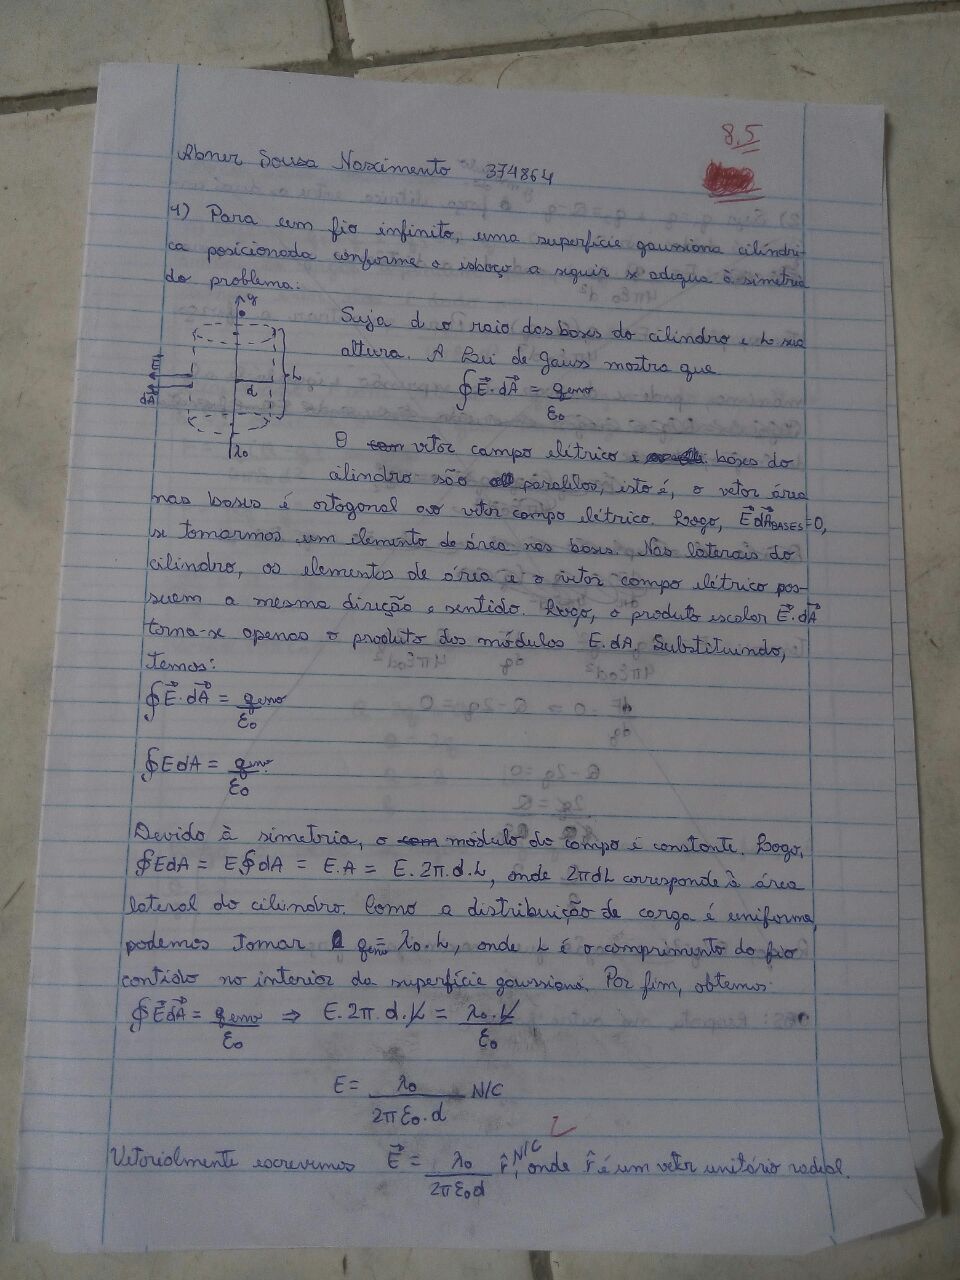 8,5
Abner Sousa Nascimento 374864
1) Para um fio infinito, uma superfície gaussiana cilíndri-
ca posicionada conforme o esboço a seguir se adequa à simetria
do problema:
Seja d o raio das bases do cilindro e L sua
altura. A Lei de Gauss mostra que
∮E⃗·dA⃗ = q_env/ε₀
d
L
E⃗
dA⃗
λ₀
O vetor campo elétrico e bases do
cilindro são paralelos, isto é, o vetor área
nas bases é ortogonal ao vetor campo elétrico. Logo, E⃗dA⃗_BASES=0,
se tomarmos um elemento de área nas bases. Nas laterais do
cilindro, os elementos de área e o vetor campo elétrico pos-
suem a mesma direção e sentido. Logo, o produto escalar E⃗·dA⃗
torna-se apenas o produto dos módulos E.dA. Substituindo,
temos:
∮E⃗·dA⃗ = q_env/ε₀
∮EdA = q_env/ε₀
Devido à simetria, o módulo do campo é constante. Logo,
∮EdA = E∮dA = E.A = E.2π.d.L, onde 2πdL corresponde à área
lateral do cilindro. Como a distribuição de carga é uniforme,
podemos tomar q_env = λ₀.L, onde L é o comprimento do fio
contido no interior da superfície gaussiana. Por fim, obtemos:
∮E⃗dA⃗ = q_env/ε₀ ⇒ E.2π.d.L = λ₀.L/ε₀
E = λ₀/2πε₀.d N/C
Vetorialmente escrevemos E⃗ = λ₀/2πε₀d r̂ N/C, onde r̂ é um vetor unitário radial.